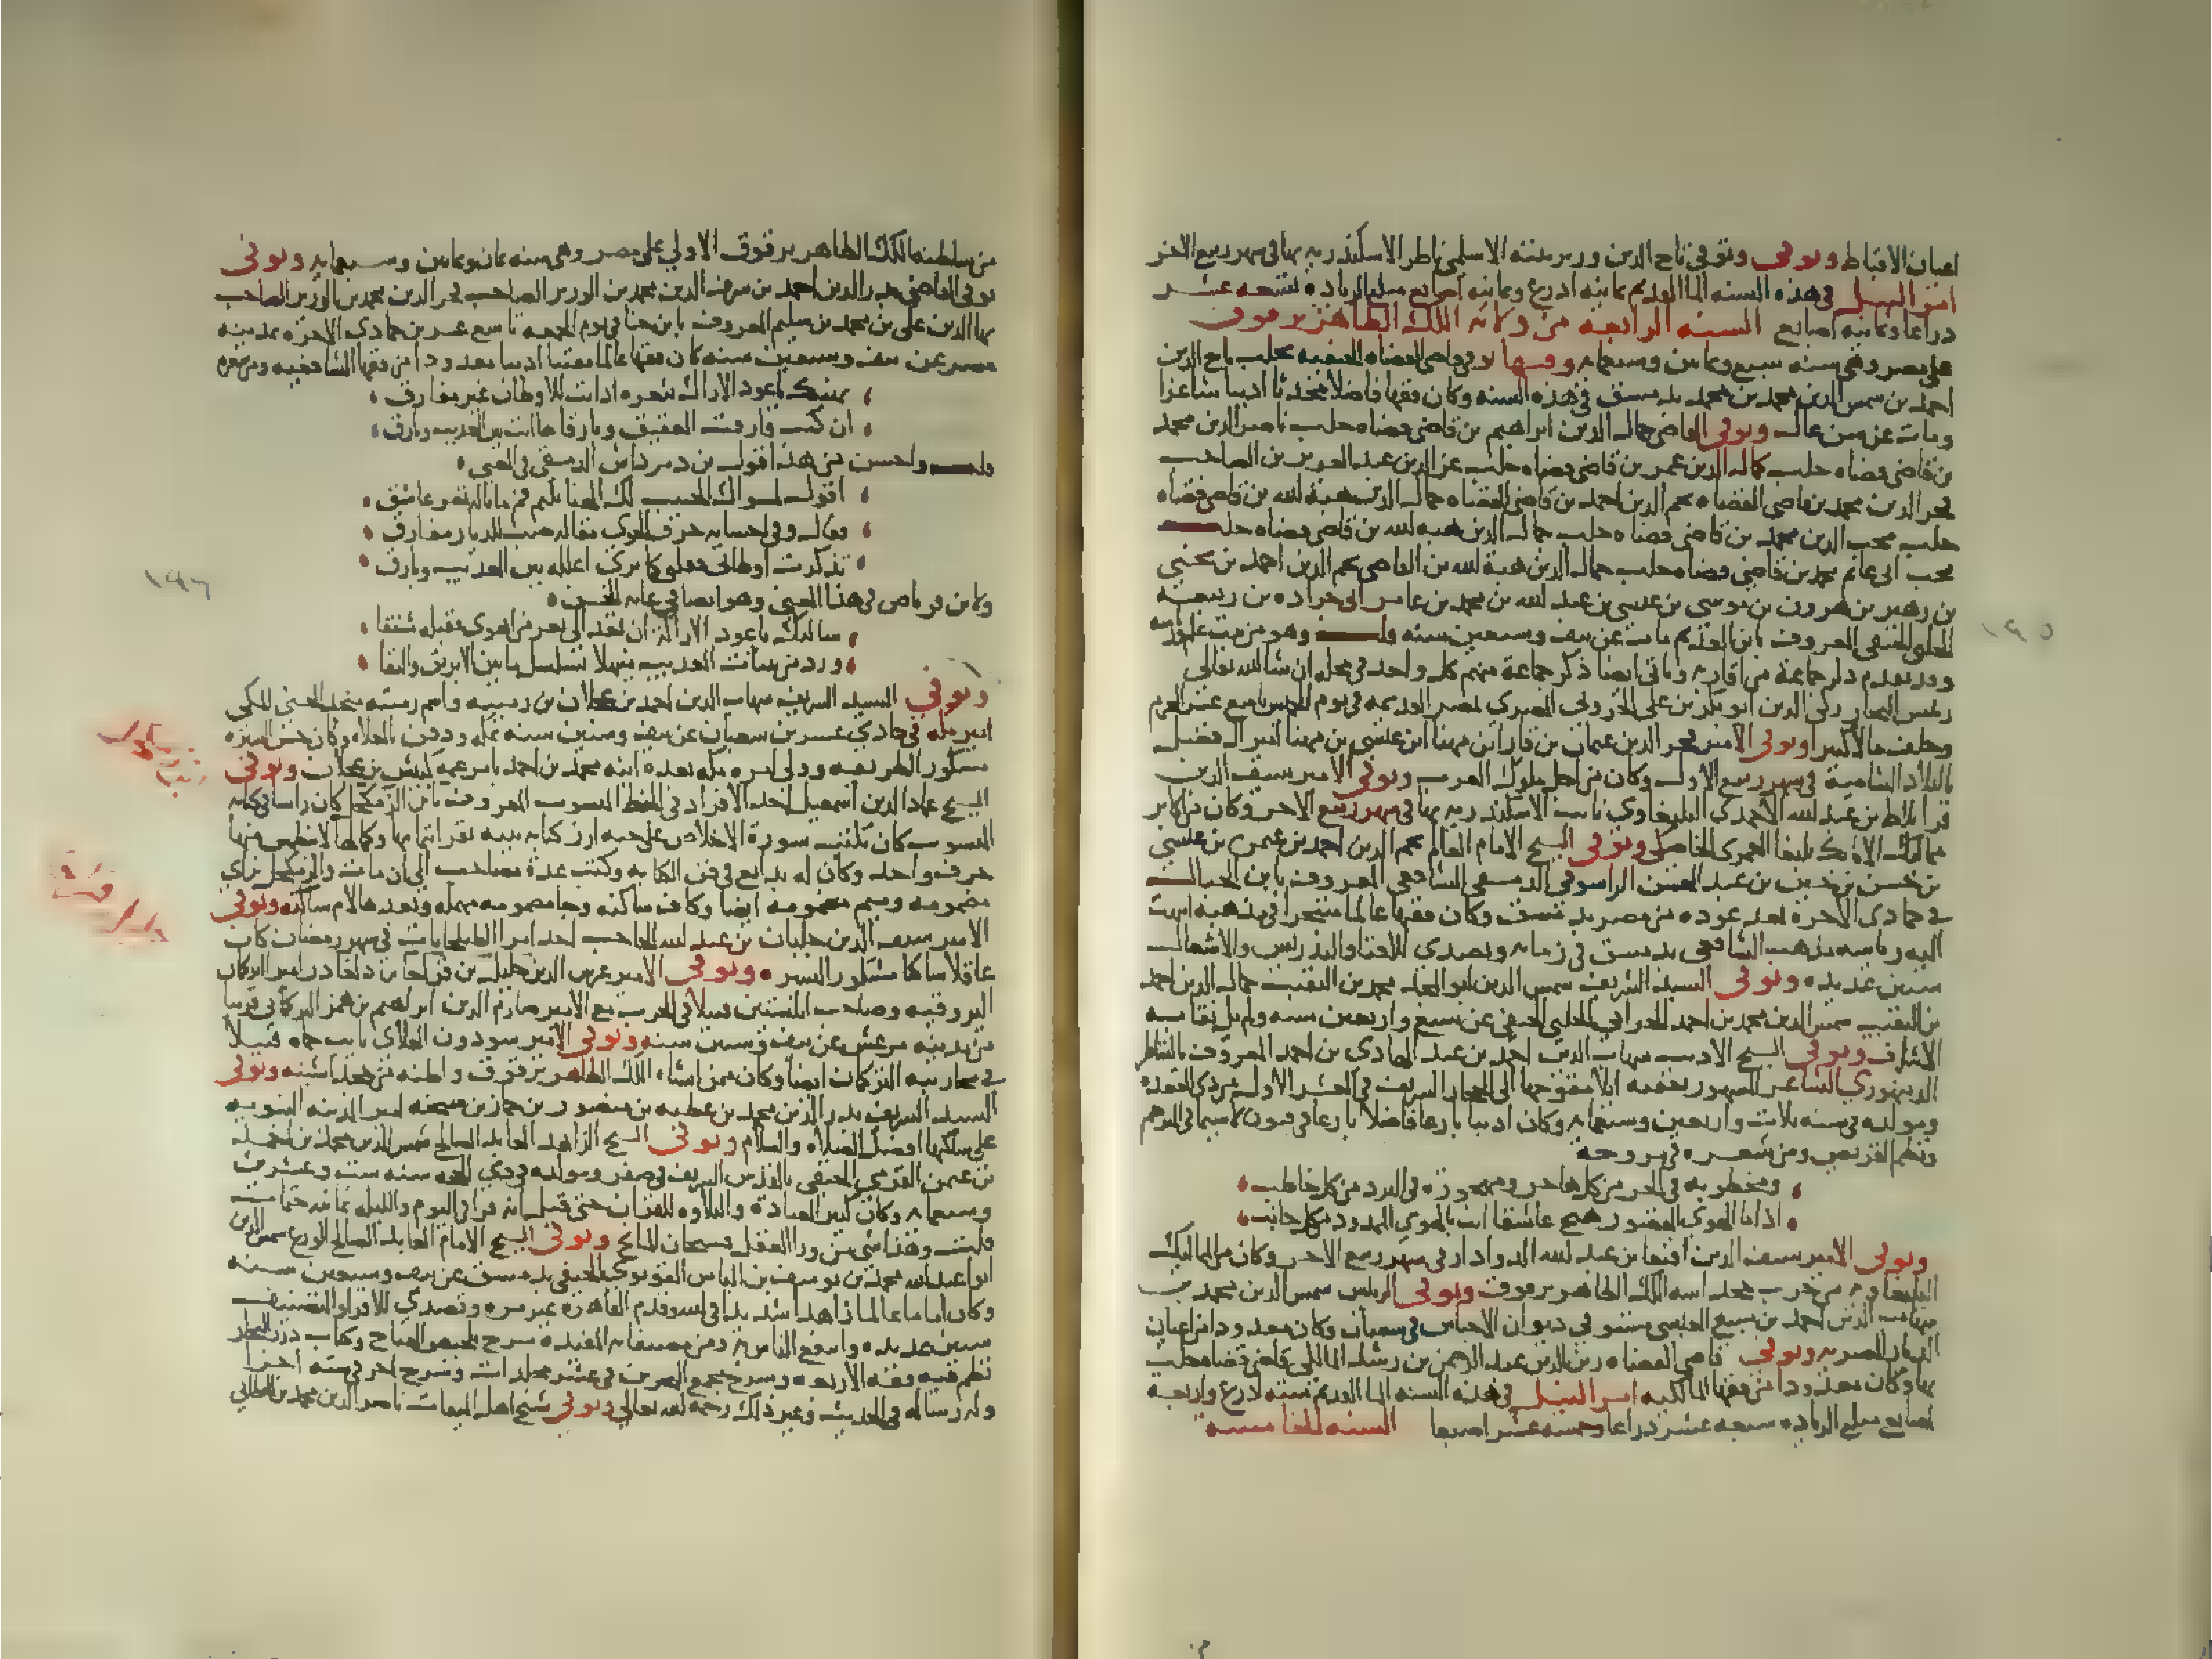 اعيان الاقباط وتوفي وتوفي تاج الدين وزير بيته الاسلمي ناظر الاسكندريه بها في شهر ربيع الاخر
امر النيل في هذه السنه الما القديم ثمانيه اذرع وثمانيه اصابع مبلغ الزياده تسعه عشر
ذراعا وثمانيه اصابع السنه الرابعه من ولايه الملك الظاهر برقوق
علي مصر وهي سنه سبع وثمانين وسبعمايه وفيها توفي قاضي القضاه الحنفيه بحلب تاج الدين
احمد بن شمس الدين محمد بن محمد بدمشق في هذه السنه وكان فقيها فاضلا محدثا اديبا شاعرا
ومات عن سن عال وتوفي القاضي جمال الدين ابراهيم بن قاضي قضاه حلب ناصر الدين محمد
بن قاضي قضاه حلب كمال الدين عمر بن قاضي قضاه حلب عز الدين عبد العزيز بن الصاحب
فخر الدين محمد بن قاضي القضاه نجم الدين احمد بن قاضي القضاه جمال الدين هبة الله بن قاضي قضاه
حلب محب الدين محمد بن قاضي قضاه حلب جمال الدين هبه الله بن قاضي قضاه حلب
محب ابي غانم محمد بن قاضي قضاه حلب جمال الدين هبة الله بن القاضي نجم الدين احمد بن يحيي
بن زهير بن هرون بن موسي بن عيسي بن عبد الله بن محمد بن عامر ابي جراده بن ربيعه
الحلبي الحنفي المعروف بابن العديم مات عن نيف وسبعين سنه قلت وهو من بيت علم ورياسه
وقد تقدم ذكر جماعة من اقاربه وياتي ايضا ذكر جماعة منهم كل واحد في محله ان شا الله تعالي
رئيس التجار زكي الدين ابو بكر بن علي الخروبي المصري بمصر القديمه في يوم الخميس تاسع عشر المحرم
وخلف مالا كثيرا وتوفي الامير فخر الدين عثمان بن قارا بن مهنا ابن عيسي بن مهنا امير ال فضل
بالبلاد الشامية في شهر ربيع الاول وكان من اجل ملوك العرب وتوفي الامير سيف الدين
قرا بلاط بن عبد الله الاحمدي اليلبغاوي نايب الاسكندريه بها في شهر ربيع الاخر وكان من اكابر
مماليك الاتابك يلبغا العمري الخاصكي وتوفي الشيخ الامام العالم نجم الدين احمد بن عثمن بن عيسي
بن حسن بن حسين بن عبد المحسن الياسوفي الدمشقي الشافعي المعروف بابن الجبال
في جمادي الاخرة بعد عوده من مصر بدمشق وكان فقيها عالما متبحرا في مذهبه انتهت
اليه رياسه مذهب الشافعي بدمشق في زمانه وتصدي للافتا والتدريس والاشغال
سنين عديده وتوفي السيد الشريف شمس الدين ابو المجد محمد بن النقيب جمال الدين احمد
بن النقيب شمس الدين محمد بن احمد الحراني الحلبي الحنفي عن سبع واربعين سنه ولم يل نقابه
الاشراف وتوفي الشيخ الاديب شهاب الدين احمد بن عبد الهادي بن احمد المعروف بالشاطر
الدمنهوري الشاعر المشهور بعقبه ايلا متوجها الي الحجاز الشريف في العشر الاول من ذي القعده
ومولده في سنه ثلاث واربعين وسبعمايه وكان اديبا بارعا فاضلا بارعا في فنون لاسيما في الترجم
ونظم القريض ومن شعره في مروحه
ومخطوبه في الحر من كل هاجر ومهجورة في البرد من كل خاطب
اذا ما الهوي المقصور هيج عاشقا اتت بالهوي الممدود من كل جانب
وتوفي الامير سيف الدين اقبغا بن عبد الله الدوادار في شهر ربيع الاخر وكان من المماليك
اليلبغاويه من حزب خجداشه الملك الظاهر برقوق وتوفي الرئيس شمس الدين محمد بن
شهاب الدين احمد بن سبع العبسي مستوفي ديوان الاحباس في شعبان وكان معدودا من اعيان
الديار المصريه وتوفي قاضي القضاه زين الدين عبد الرحمن بن رشد المالكي قاضي قضاه حلب
بها وكان معدودا من فقها المالكيه امر النيل في هذه السنه الما القديم سته اذرع واربعه
اصابع مبلغ الزياده سبعه عشر ذراعا وخمسه عشر اصبعا السنه الخامسه
١٩٥
من سلطنه الملك الظاهر برقوق الاولي علي مصر وهي سنه ثمان وثمانين وسبعمايه وتوفي
توفي القاضي بدر الدين احمد بن شرف الدين محمد بن الوزير الصاحب فخر الدين محمد بن الوزير الصاحب
بها الدين علي بن محمد بن سليم المعروف بابن حنا في يوم الجمعه تاسع عشر بن جمادي الاخره بمدينه
مصر عن نيف وسبعين سنه كان فقيها عالما مفتيا اديبا معدودا من فقها الشافعيه ومن شعره
يهنيك يا عود الاراك بثغره اذ انت للاوطان غير مفارق
ان كنت فارقت العقيق وبارقا ها انت بين العذيب وبارق
قلت واحسن من هذا قول بن دمرداش الدمشقي في المعني
اقول لمسواك الحبيب لك الهنا بلثم فم ما ناله ثغر عاشق
فقال وفي احشايه حرق الجوي مقاله صب للديار مفارق
تذكرت اوطاني فقلبي كما تري اعلله بين العذيب وبارق
ولابن قرناص في هذا المعني وهو ايضا في غايه الحسن
سالتك يا عود الاراكة ان تعد الي ثغر من اهوي فقبله مشفقا
ورد من ثنيات العذيب منهلا تسلسل ما بين الابيرق والنقا
وتوفي السيد الشريف شهاب الدين احمد بن عجلان بن رميثه واسم رميثه منجد الحسني المكي
امير مكه في حادي عشرين شعبان عن نيف وستين سنه بمكه ودفن بالمعلاه وكان حسن السيره
مشكور الطريقه وولي امره مكه بعده ابنه محمد بن احمد بامر عمه كبيش بن عجلان وتوفي
الشيخ عماد الدين اسمعيل احد الافراد في الخط المنسوب المعروف بابن الزمكحل كان راسا في كتابه
المنسوب كان يكتب سورة الاخلاص علي حبه ارز كتابه بينه تقرا بتمامها وكمالها لا ينطمس منها
حرف واحد وكان له بدايع في فن الكتابه وكتب عدة مصاحف الي ان مات والزمكحل بزاي
مضمومه وميم مضمومه ايضا وكاف ساكنه وحا مضمومه مهمله وبعدها لام ساكنه وتوفي
الامير سيف الدين جلبان بن عبد الله الحاجب احد امرا الطبلخانات في شهر رمضان كان
عاقلا ساكنا مشكور السيره وتوفي الامير غرس الدين خليل بن قراجا بن دلغادر امير التركمان
البزوقيه وصاحب ابلستين قتيلا في الحرب مع الامير صارم الدين ابراهيم بن همز التركماني قريبا
من مدينه مرعش عن نيف وستين سنه وتوفي الامير سودون العلاي نايب حماه قتيلا
في محاربه التركمان ايضا وكان ممن انشاه الملك الظاهر برقوق واظنه من خجداشيته وتوفي
السيد الشريف بدر الدين محمد بن عطيه بن منصور بن جماز بن شيحه امير المدينه النبويه
علي ساكنها افضل الصلاه والسلام وتوفي الشيخ الزاهد العابد الصالح شمس الدين محمد بن احمد
بن عثمن القرمي الحنفي بالقدس الشريف في صفر ومولده في ذي الحجه سنه ست وعشرين
وسبعمايه وكان كثير العبادة والتلاوه للقران حتي قيل انه قرا في اليوم والليله ثمانيه ختمات
قلت وهذا شي من ورا العقل فسبحان المانح وتوفي الشيخ الامام العابد الصالح الورع شمس الدين
ابو عبد الله محمد بن يوسف بن الياس القونوي الحنفي بدمشق عن نيف وسبعين سنه
وكان اماما عالما زاهدا شديدا في الله وقدم القاهره غير مره وتصدي للاقرا والتصنيف
سنين عديده وانتفع الناس به ومن مصنفاته المفيده شرح تلخيص المفتاح وكتاب درر البحار
نظم فيه فقه الاربعه وشرح مجمع البحرين في عشر مجلدات وشرح اخر في سته اجزا
وله رساله في الحديث وغير ذلك رحمه الله تعالي وتوفي شيخ اهل الميقات ناصر الدين محمد بن الخطائي
١٩٦